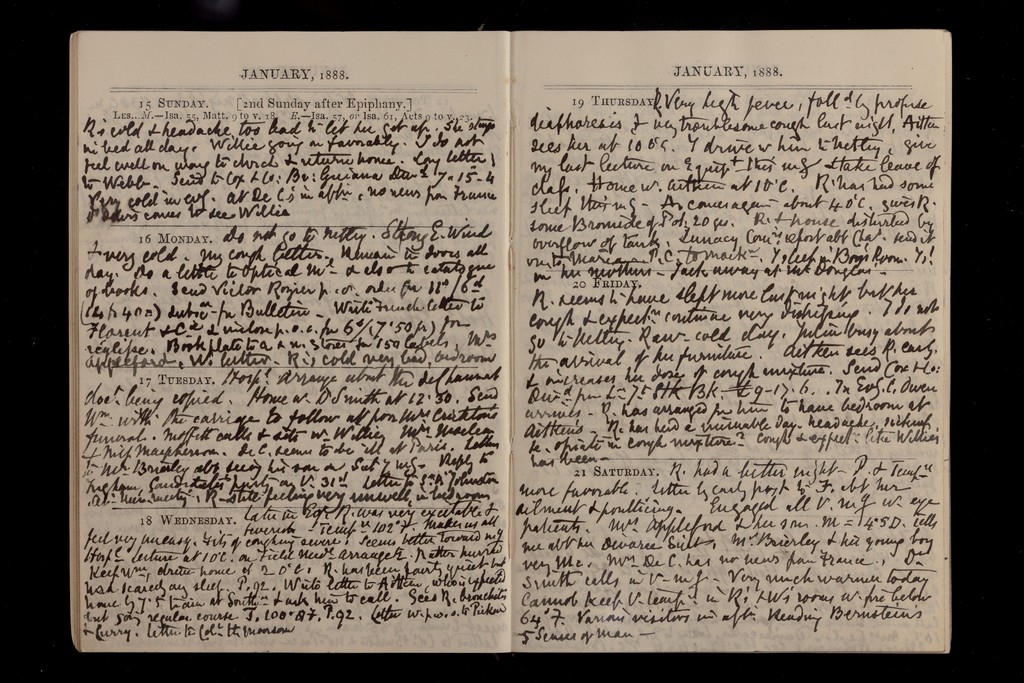 JANUARY, 1888.
15 SUNDAY. [2nd Sunday after Epiphany.]
LES.—M.—Isa. 55, Matt. 9 to v. 18. E.—Isa. 57, or Isa. 61, Acts 9 to v. 23.
R's cold & headache too bad to let her get up. She stays
in bed all day. Willie going on favorably. I do not
feel well on way to church & return home. Long letter
to Webb. Send to Cox & Co: Br: Guiana Divd 7.15.4
Very cold in evg. At De C's in aftn, no news from France
comes to see Willie
16 MONDAY. Do not go to Netley. Strong E. Wind
& very cold. My cough better. Remain in doors all
day. Do a letter to Optical Mn & also to catalogue
of books. Send Victor Rozier p.o. order for 11s/6d
for Bulletin. Write French letter to
Florent & Cie & enclose p.o.o. for 6s/(7.50 fr) for
Book plate to A & N. Stores for 150 labels. Mrs
Appleford, Wt letter. R's cold very bad, bedroom
17 TUESDAY. Hospl. Arrange about the
doct. being copied. Home w. D Smith at 12.30. Send
Wm. with the carriage to follow at poor Mrs Crichton's
funeral. Moffitt calls & sits w. Willie. Mrs Maclean
& Miss Macpherson. De C. seems to be ill at Paris. Letter
to Mr Brierley abt seeing his son on Saty mg. Reply to
Ingham, Candidates' party on V. 31st. Letter to Johnston
R. still feeling very unwell in bedroom
18 WEDNESDAY. Late in R. was very excitable &
feverish – Tempre 102°F. makes us all
feel very uneasy. Fits of coughing severe. Seems better toward mg
Hospl. lecture at 10°C. on Field Medl arrangts. Rather hurried
Keep Wm, drive home at 2 o'c. R. has been fairly quiet but
had scarcely any sleep. P.92. Write letter to Aitken, who is expected
home by 7.5 train at & ask him to call. Sees R. bronchitis
but going regular course T. 100.8 F. P.92. Letter w. p.o.o. to Pickard
& Curry. Letter to Coln Thomson
JANUARY, 1888.
19 THURSDAY. R. Very high fever, folld by profuse
diaphoresis & very troublesome cough last night. Aitken
sees her at 10 o'c. I drive w him to Netley, give
my last lecture on Equipt this mg & take leave of
class. Home w. Aitken at 10'c. R. has had some
sleep this mg – A. comes again about 4 o'c. gives R.
some Bromide of Pot. 20 grs. R. & house disturbed by
overflow of tank. Lunacy Comn report abt Chas. send it
on to Maria – P.C. to Mack. I sleep in Boys Room.
in her mothers – Jack away at Mr Douglas –
20 FRIDAY.
R. seems to have slept more last night but her
cough & expectn continue very distressing. I do not
go to Netley. Raw cold day. Julia busy about
the arrival of her furniture. Aitken sees R. early,
& increases her dose of cough mixture. Send Cox & Co:
Divd from L – 7s Stk Bk: £ 9–17.6. In Evg. C. Owen
arrives – R. has arranged for him to have bedroom at
Aitken's – R. has had a miserable day. headache, sickness
&c. opiate in cough mixture? Cough & expectn like Willie's
has been –
21 SATURDAY. R. had a better night – P. & Tempre
more favorable. Letter by early post to F. abt her
ailment & poulticing. Engaged all V. mg w. eye
patients. Mrs Appleford & her son. M = 4.5 D. tells
me abt her Divorce Suit. Mr Brierley & his young boy
very Mc. Mrs De C. has no news from France. Dr
Smith calls in V. mg – Very much warmer today
Cannot keep V. tempre in R's & W's rooms w. fire below
64° F. Various visitors in aftn. Reading Bernstein's
5 Senses of Man –